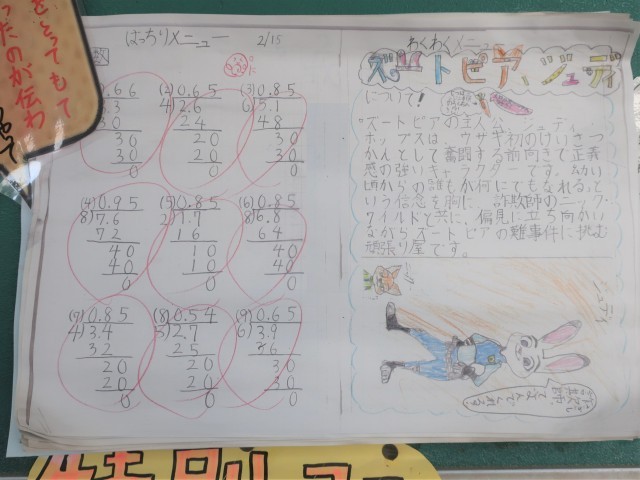 をとってもて
ったのが伝わ
ばっちりメニュー 2/15
0.66
3.3
30
30
0
(2) 0.65
4)2.6
24
20
20
0
(3) 0.85
6)5.1
48
30
30
0
(4) 0.95
8)7.6
72
40
40
0
(5) 0.85
2)1.7
16
10
10
0
(6) 0.85
8)6.8
64
40
40
0
(7) 0.85
4)3.4
32
20
20
0
(8) 0.54
5)2.7
25
20
20
0
(9) 0.65
6)3.9
36
30
30
0
わくわくメニュー
ズートピア、ジュディ
について!
ズートピアの主人公、ジュディ・
ホップスは、ウサギ初のけいさつ
かんとして奮闘する前向きで正義
感の強いキャラクターです。幼い
頃からの「誰もが何にでもなれる」と
いう信念を胸に、詐欺師のニック・
ワイルドと共に、偏見に立ち向かい
ながらズートピアの難事件に挑む
頑張り屋です。
ジュディ
特別コー